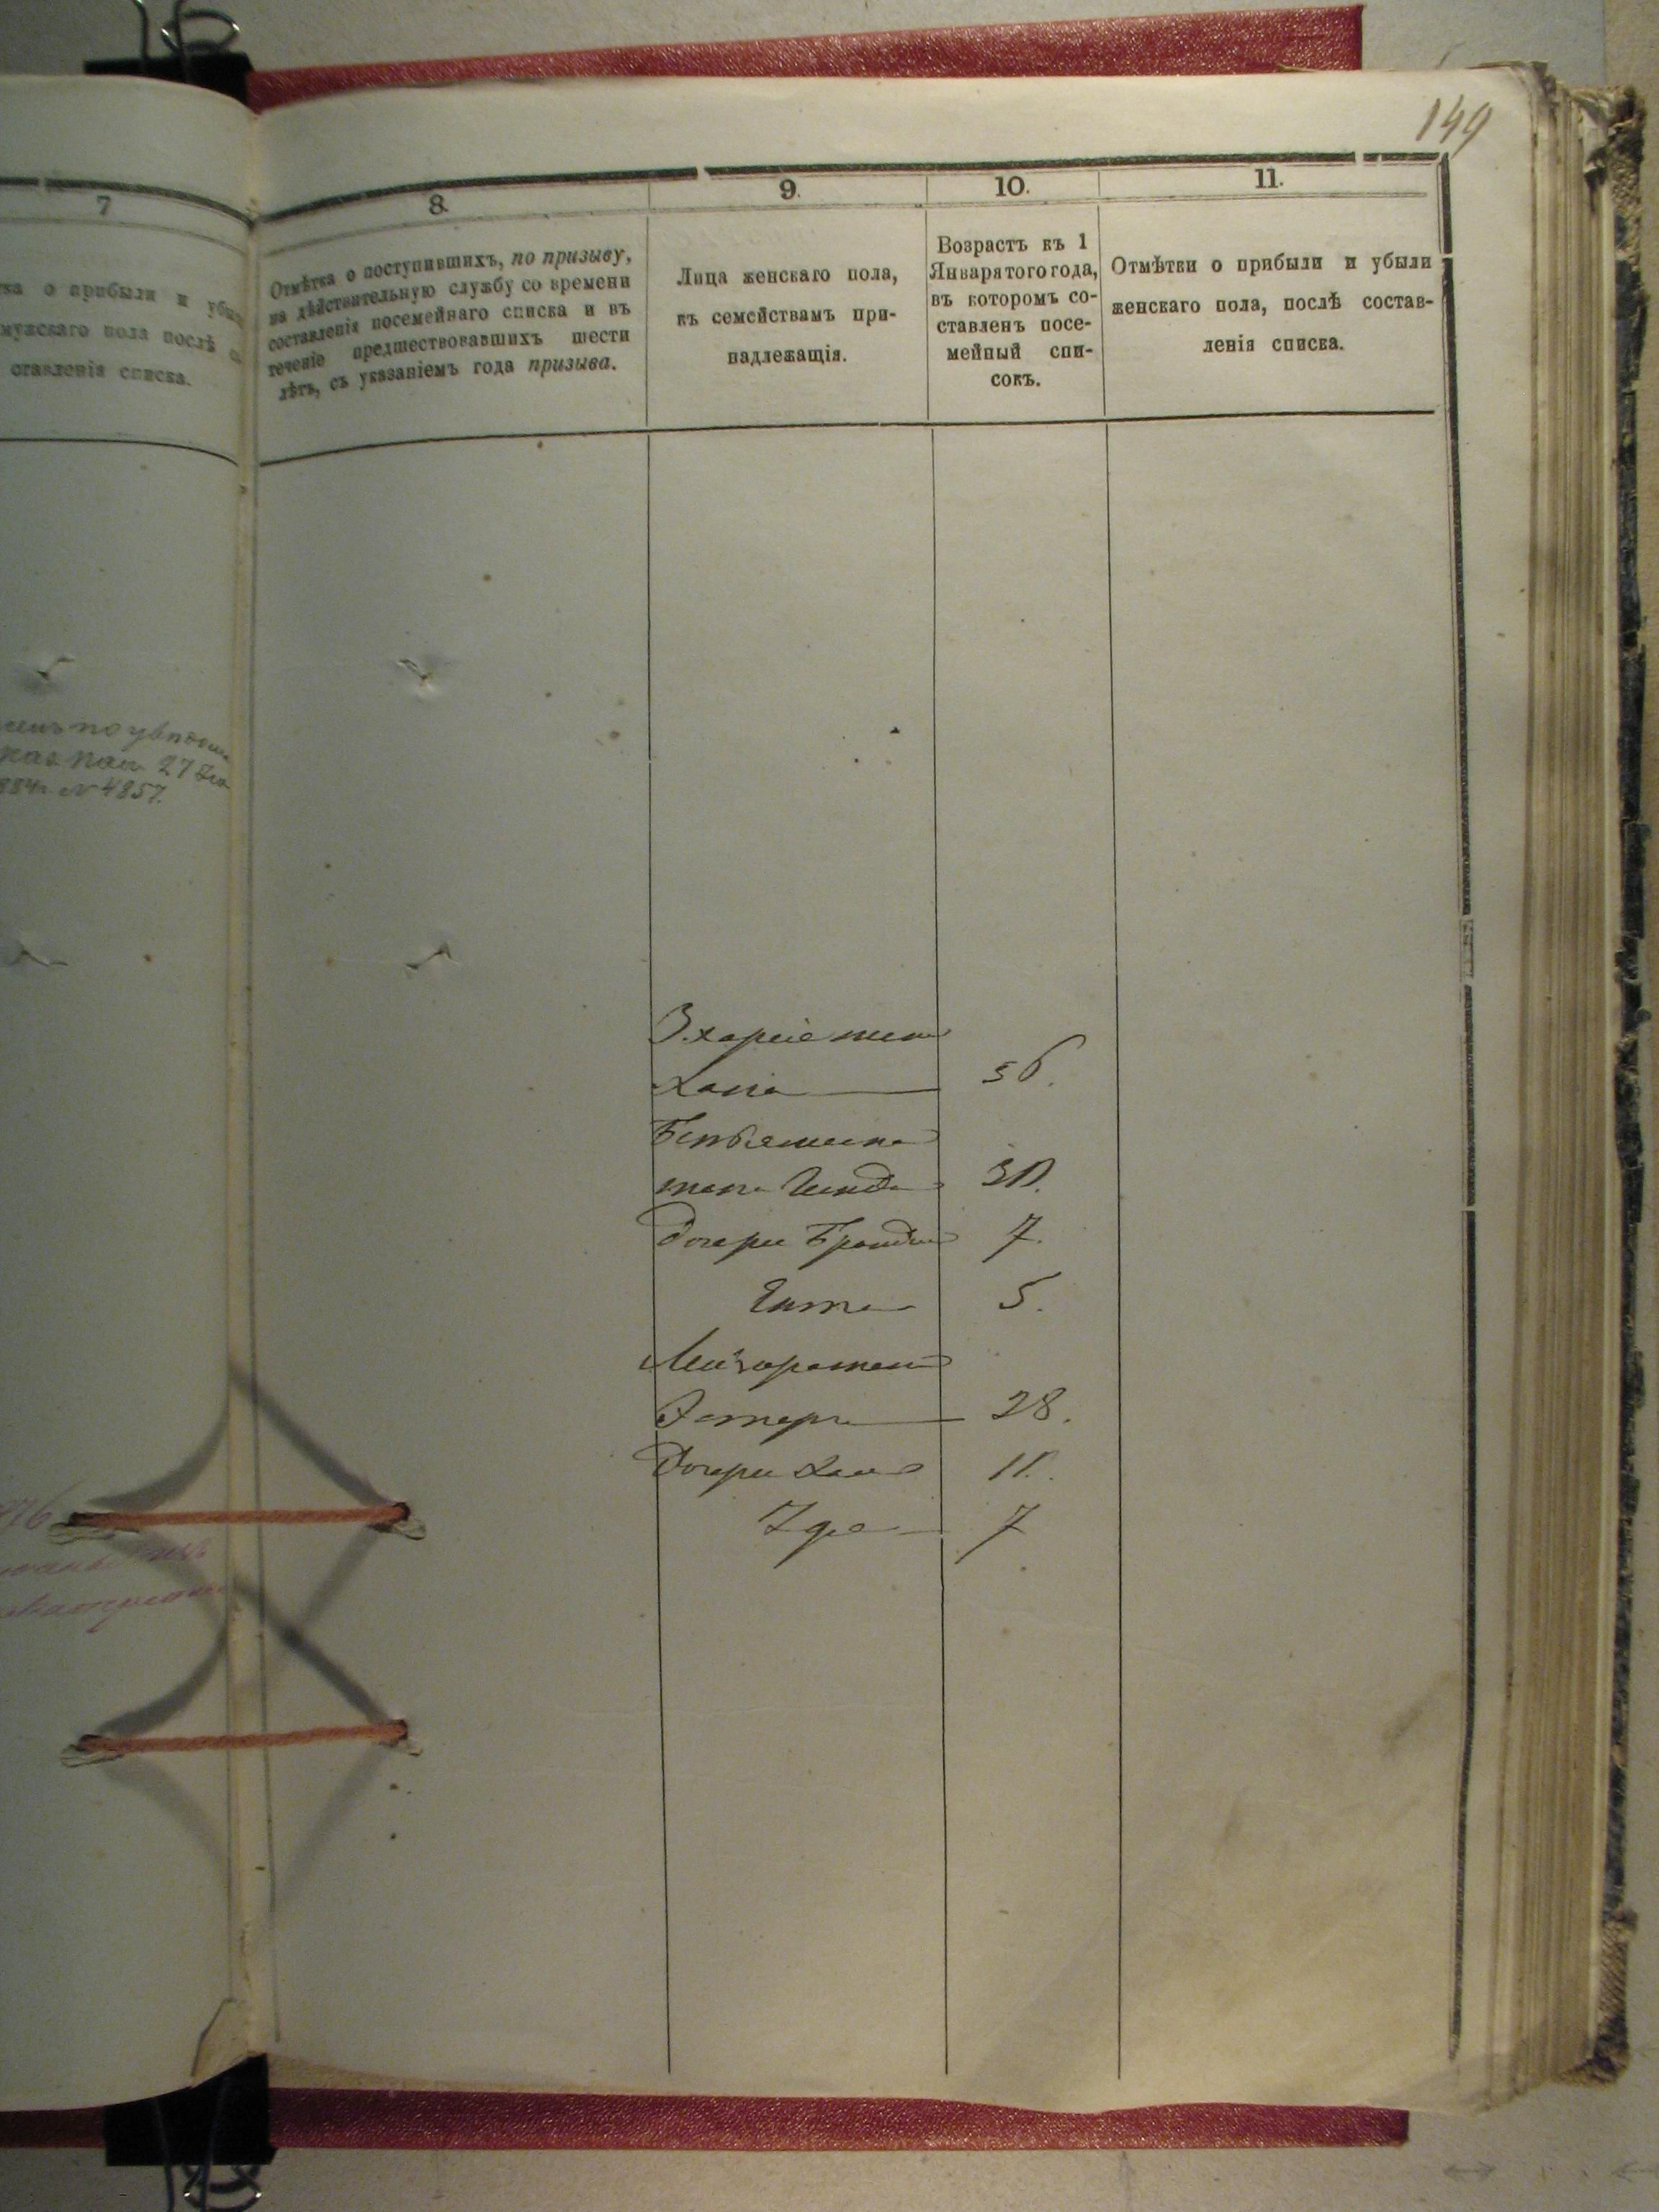 149
7
ка о прибыли и убыли
мужскаго пола послѣ со
ставленія списка.
8.
Отмѣтка о поступившихъ, по призыву,
на дѣйствительную службу со времени
составленія посемейнаго списка и въ
теченіе предшествовавшихъ шести
лѣтъ, съ указаніемъ года призыва.
9.
Лица женскаго пола,
къ семействамъ при-
надлежащія.
10.
Возрастъ къ 1
Января того года,
въ которомъ со-
ставленъ посе-
мейный спи-
сокъ.
11.
Отмѣтки о прибыли и убыли
женскаго пола, послѣ состав-
ленія списка.
27
№ 4857.
Захаріе жена
Хана 56.
Беньямина
жена 30.
Дочери 7.
Гита 5.
жена
Эстеръ 28.
Дочери Хана 11.
7